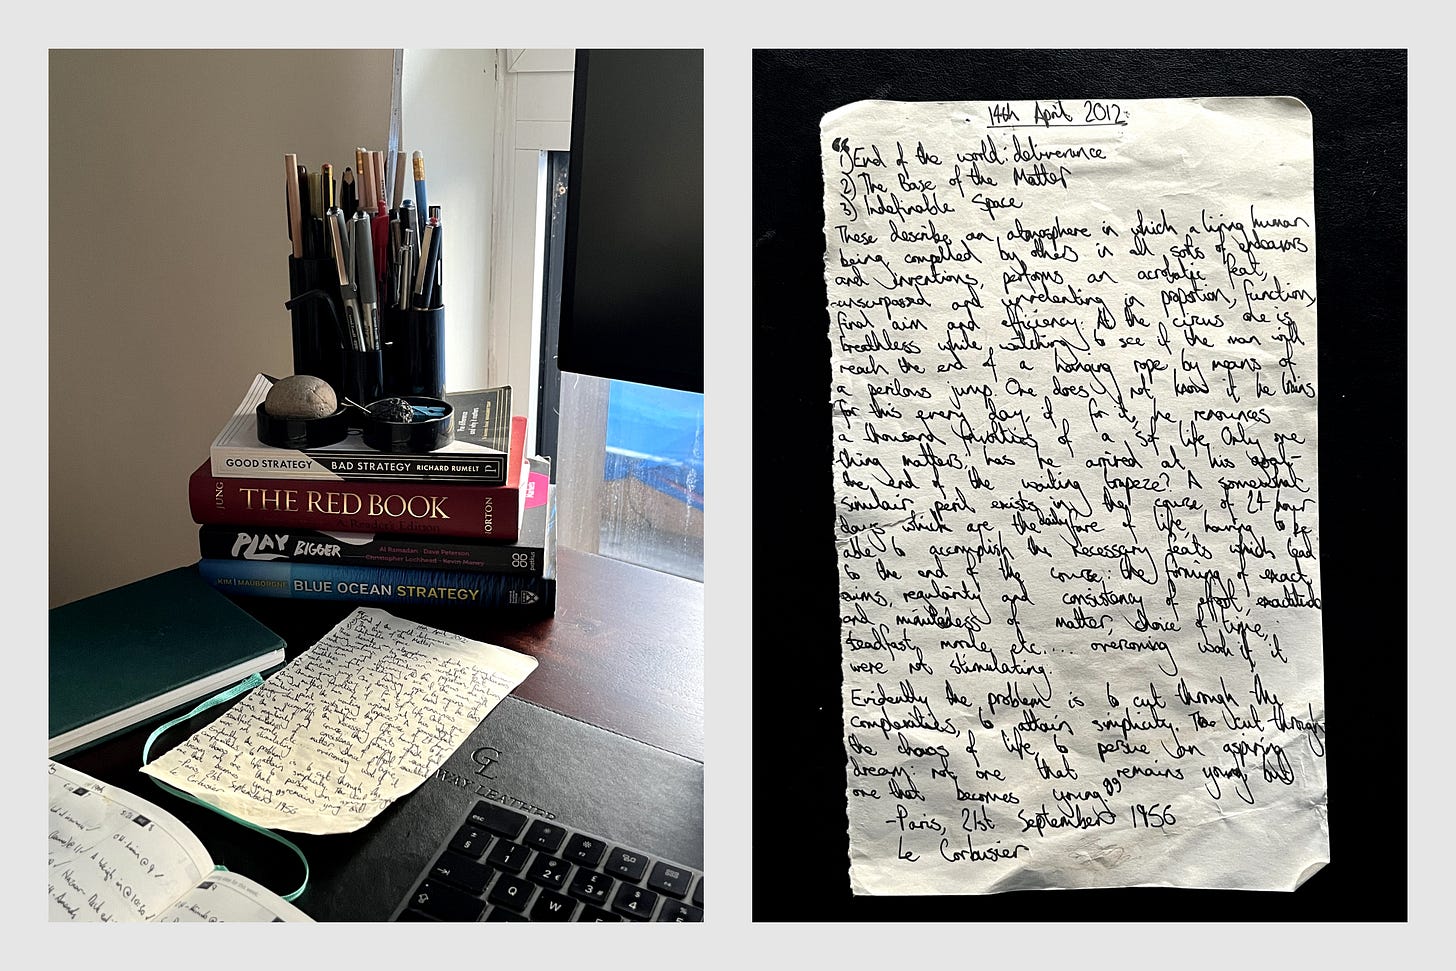 GOOD STRATEGY BAD STRATEGY RICHARD RUMELT
JUNG THE RED BOOK NORTON
A Reader's Edition
PLAY BIGGER Al Ramadan Dave Peterson
Christopher Lochhead Kevin Maney
KIM | MAUBORGNE BLUE OCEAN STRATEGY
GL
WAY LEATHER
esc
§ 1 2 £ 3
Q W
14th April 2012
“1) End of the world: deliverance
2) The Base of the Matter
3) Indefinable Space
These describe an atmosphere in which a living human
being compelled by others in all sorts of endeavors
and inventions, performs an acrobatic feat,
unsurpassed and unrelenting in proportion, function,
final aim and efficiency. At the circus one is
breathless while watching to see if the man will
reach the end of a hanging rope by means of
a perilous jump. One does not know if he trains
for this every day, if for it, he renounces
a thousand frivolities of a soft life. Only one
thing matters: has he arrived at his goal-
the end of the waiting trapeze? A somewhat
similair peril exists in the course of 24 hour
days which are the daily fare of life, having to be
able to accomplish the necessary feats which lead
to the end of the course: the forming of exact
aims, regularity and consistancy of effort, exactitude
and minuteness of matter, choice of time,
steadfast, morale, etc.... overcoming work if it
were not stimulating.
Evidently the problem is to cut through the
complexities, to attain simplicity. To cut through
the chaos of life, to persue an aspiring
dream: not one that remains young but
one that becomes young.”
-Paris, 21st September 1956
Le Corbusier